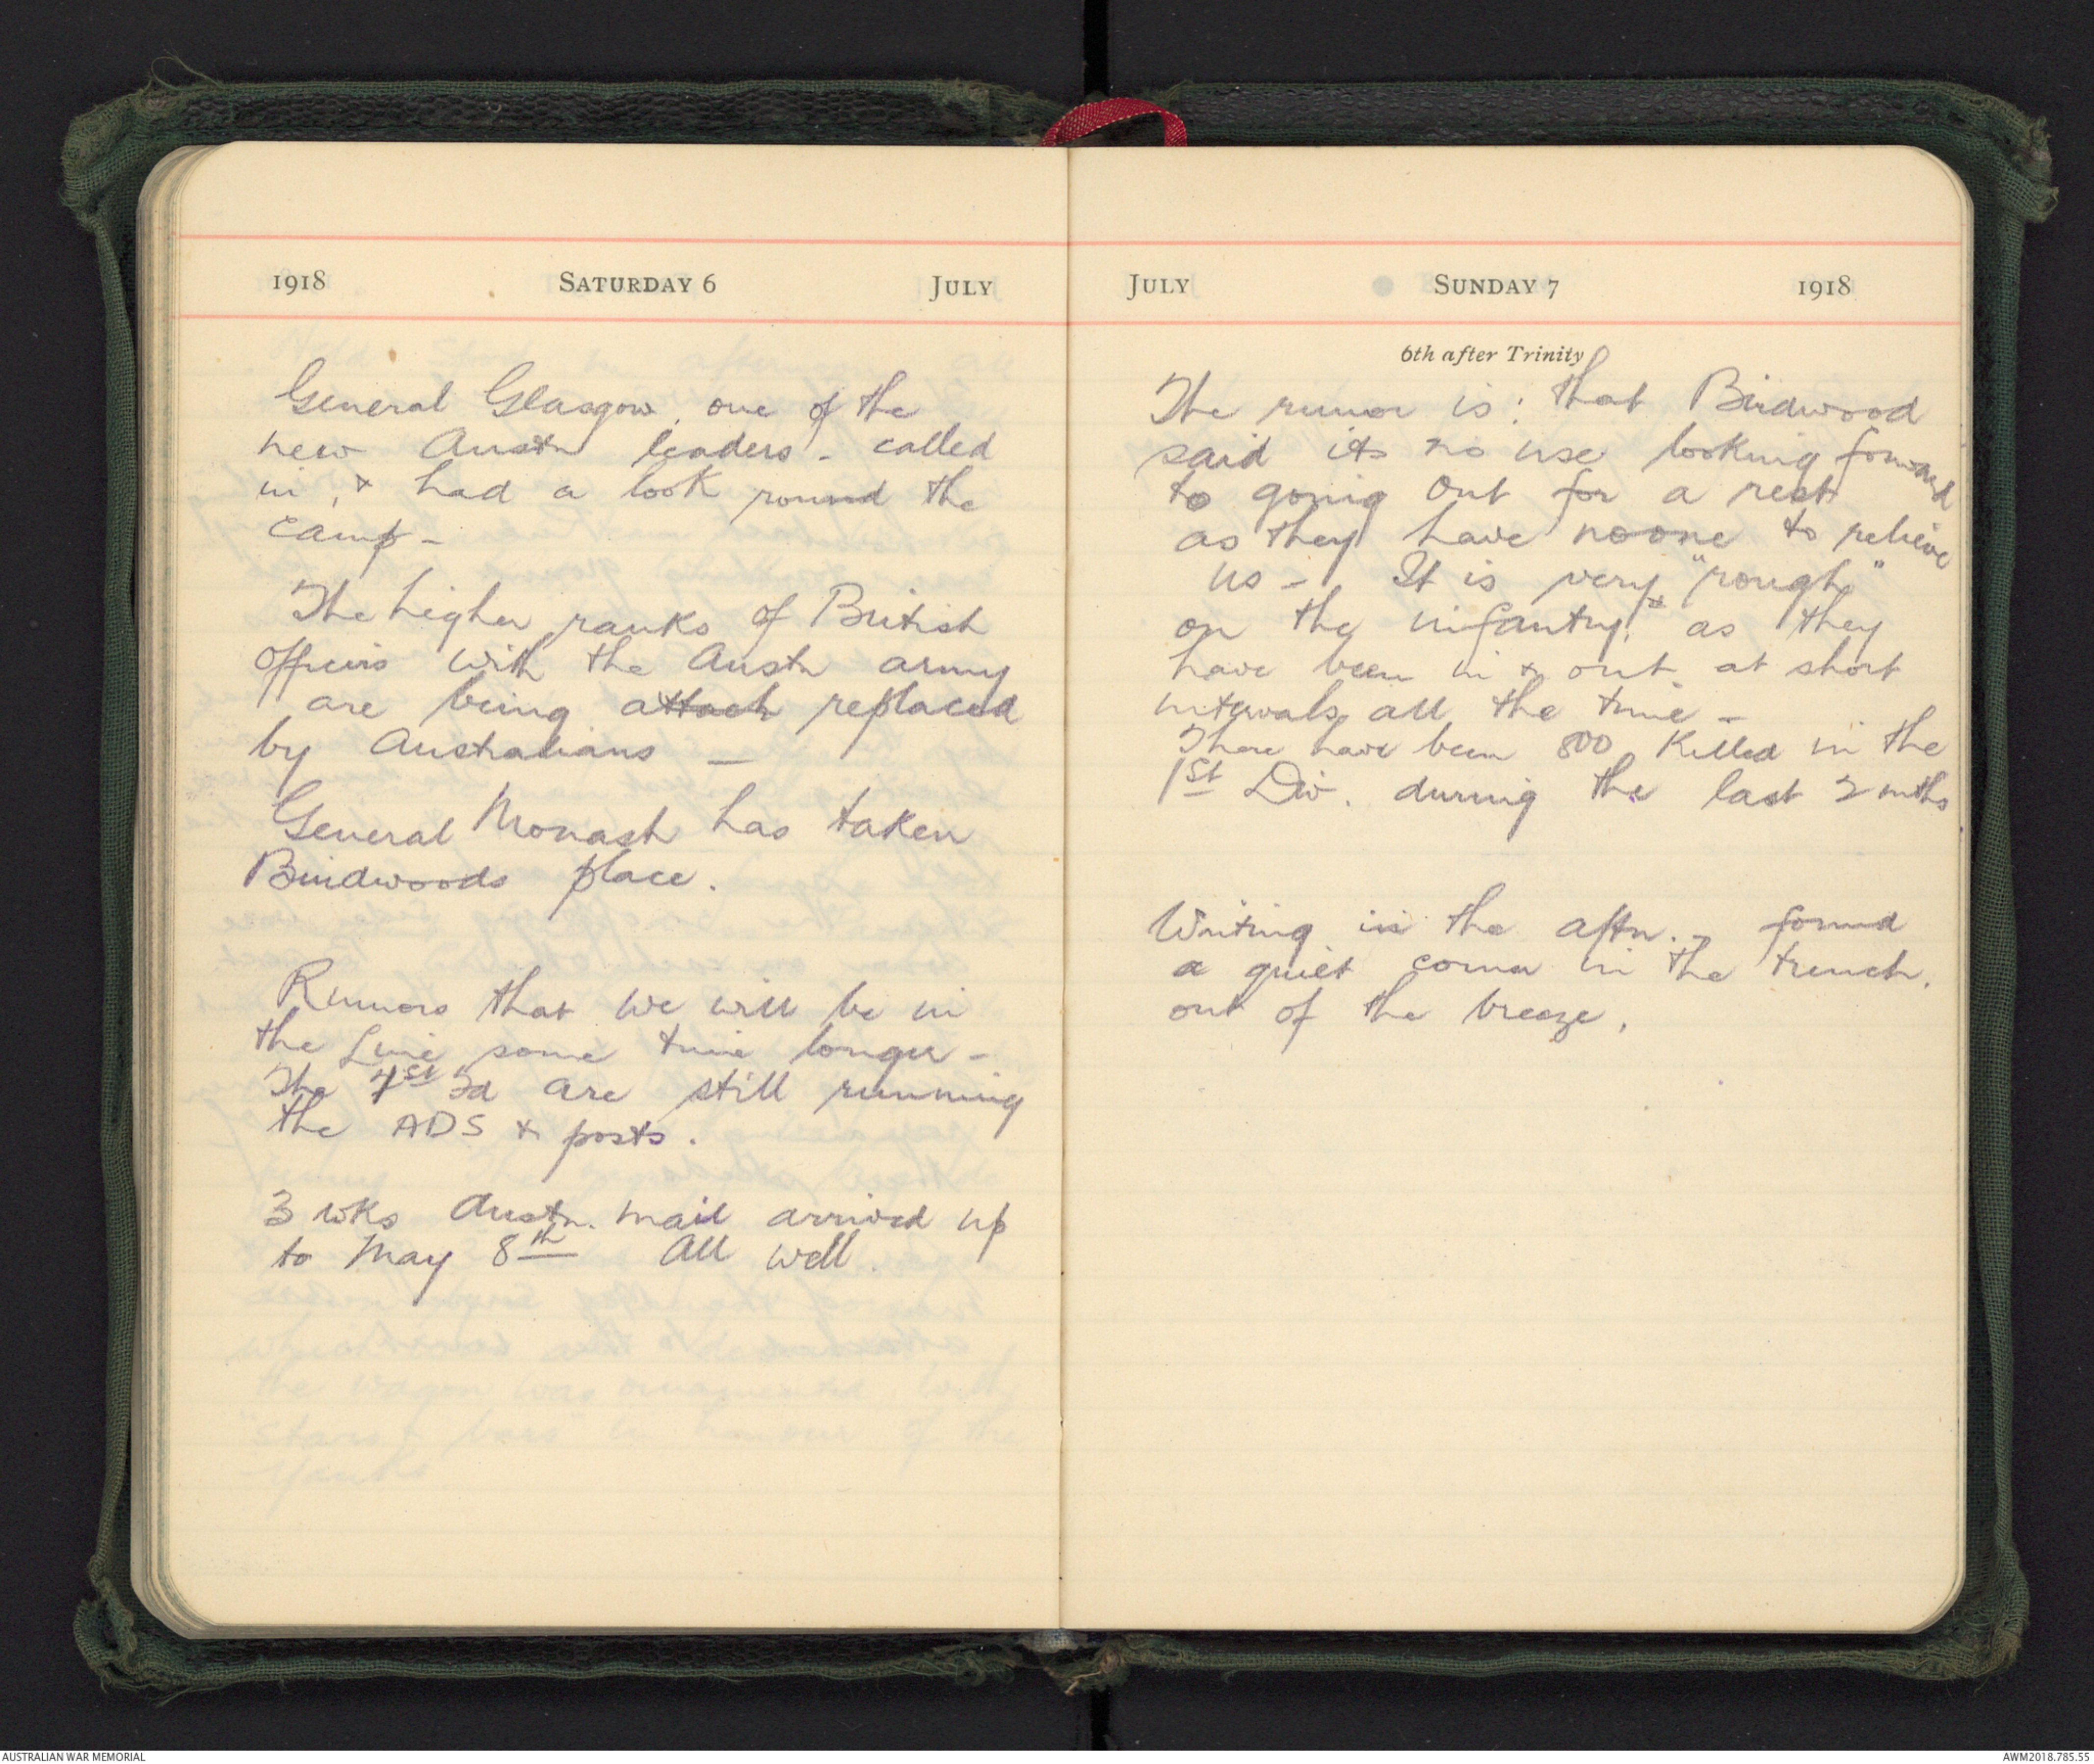 1918 SATURDAY 6 JULY
General Glasgow, one of the
new Austn leaders - called
in, & had a look round the
camp -
The higher ranks of British
officers with the Austn army
are being attach replaced
by Australians -
General Monash has taken
Birdwoods place.
Rumors that we will be in
the Line some time longer -
The 1st Fd are still running
the ADS & posts.
3 wks Austn. mail arrived up
to May 8th All well.
JULY SUNDAY 7 1918
6th after Trinity
The rumor is: that Birdwood
said its no use looking forward
to going out for a rest
as they have noone to relieve
us - It is very "rough"
on the infantry, as they
have been in & out at short
intervals all the time -
There have been 800 killed in the
1st Div. during the last 2 mths.
Writing in the aftn. - found
a quiet corner in the trench,
out of the breeze.
AUSTRALIAN WAR MEMORIAL
AWM2018.785.35